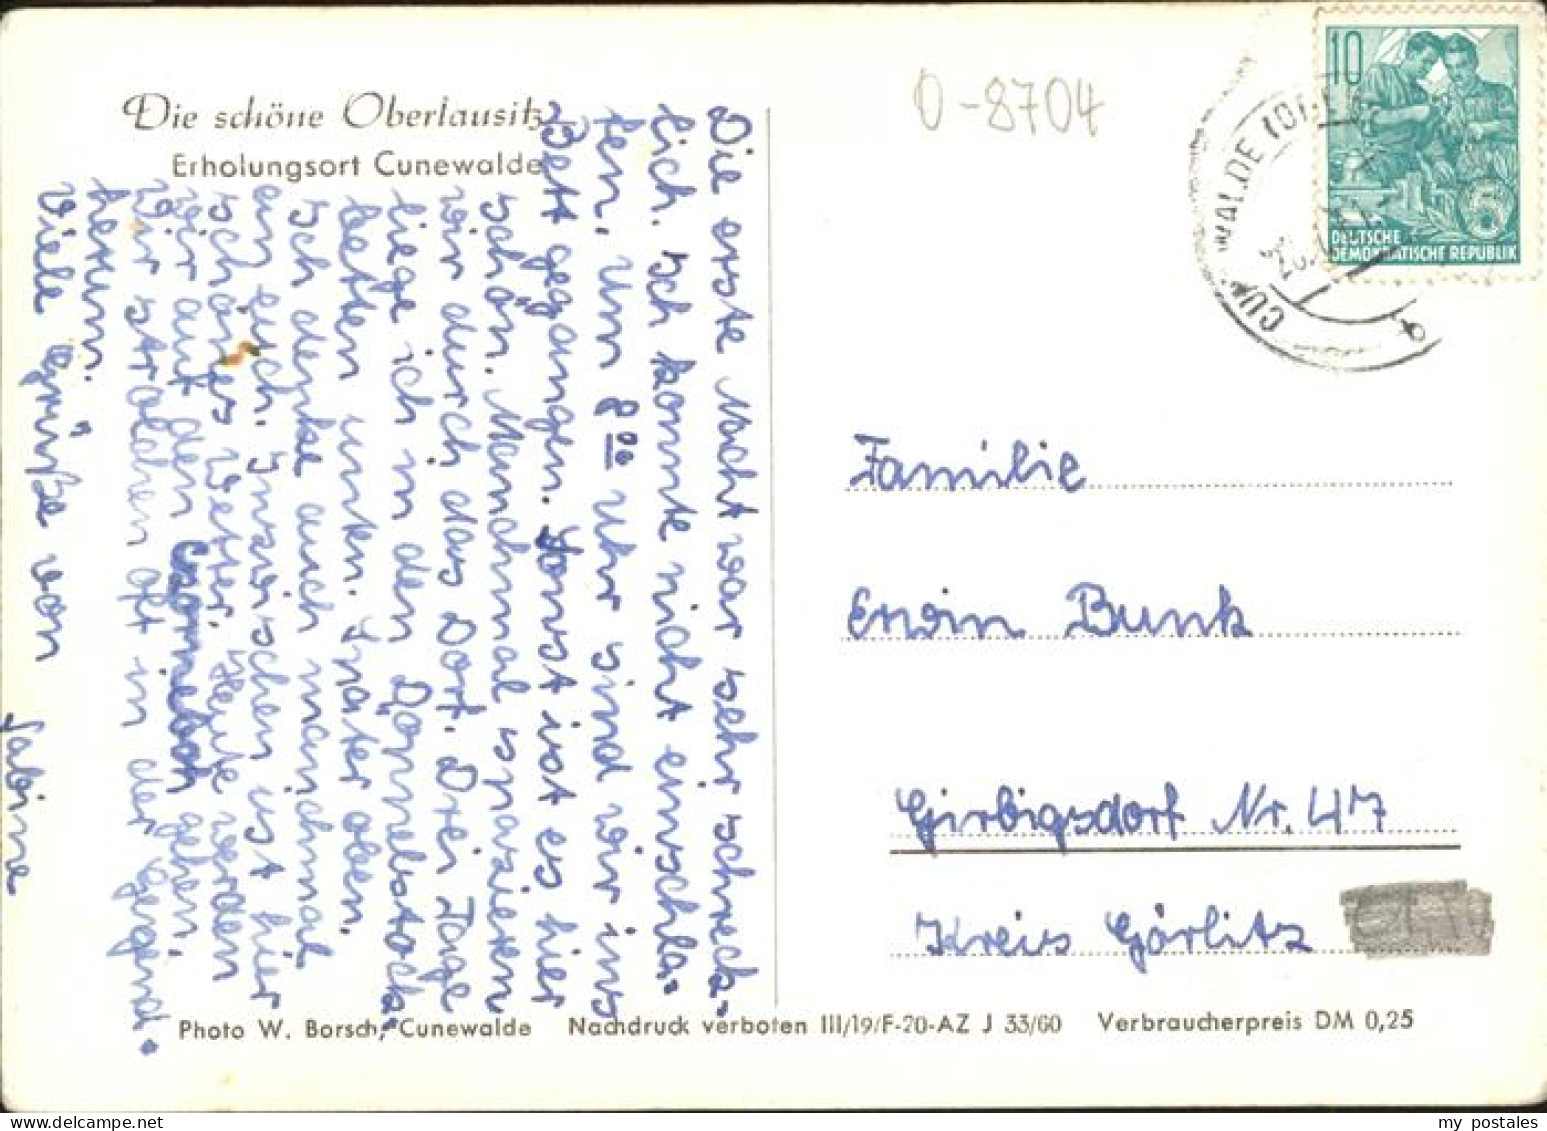 Die schöne Oberlausitz
Erholungsort Cunewalde
Die erste Nacht war sehr schreck-
lich. Ich konnte nicht einschla-
fen. Um 8⁰⁰ Uhr sind wir ins
Bett gegangen. Sonst ist es hier
schön. Manchmal spazieren
wir durch das Dorf. Drei Tage
liege ich in den Doppelstock-
betten unten. Später oben.
Ich denke auch manchmal
an euch. Inzwischen ist hier
schönes Wetter. Heute werden
wir auf den gehen.
Wir strolchen oft in der Gegend
herum.
Viele Grüße von
Sabine
O-8704
CUNEWALDE (OBERLAUS
10
DEUTSCHE
DEMOKRATISCHE REPUBLIK
Familie
Erwin Bunk
Girbigsdorf Nr. 47
Kreis Görlitz
Photo W. Borsch, Cunewalde Nachdruck verboten III/19/F-20-AZ J 33/60 Verbraucherpreis DM 0,25
my postales